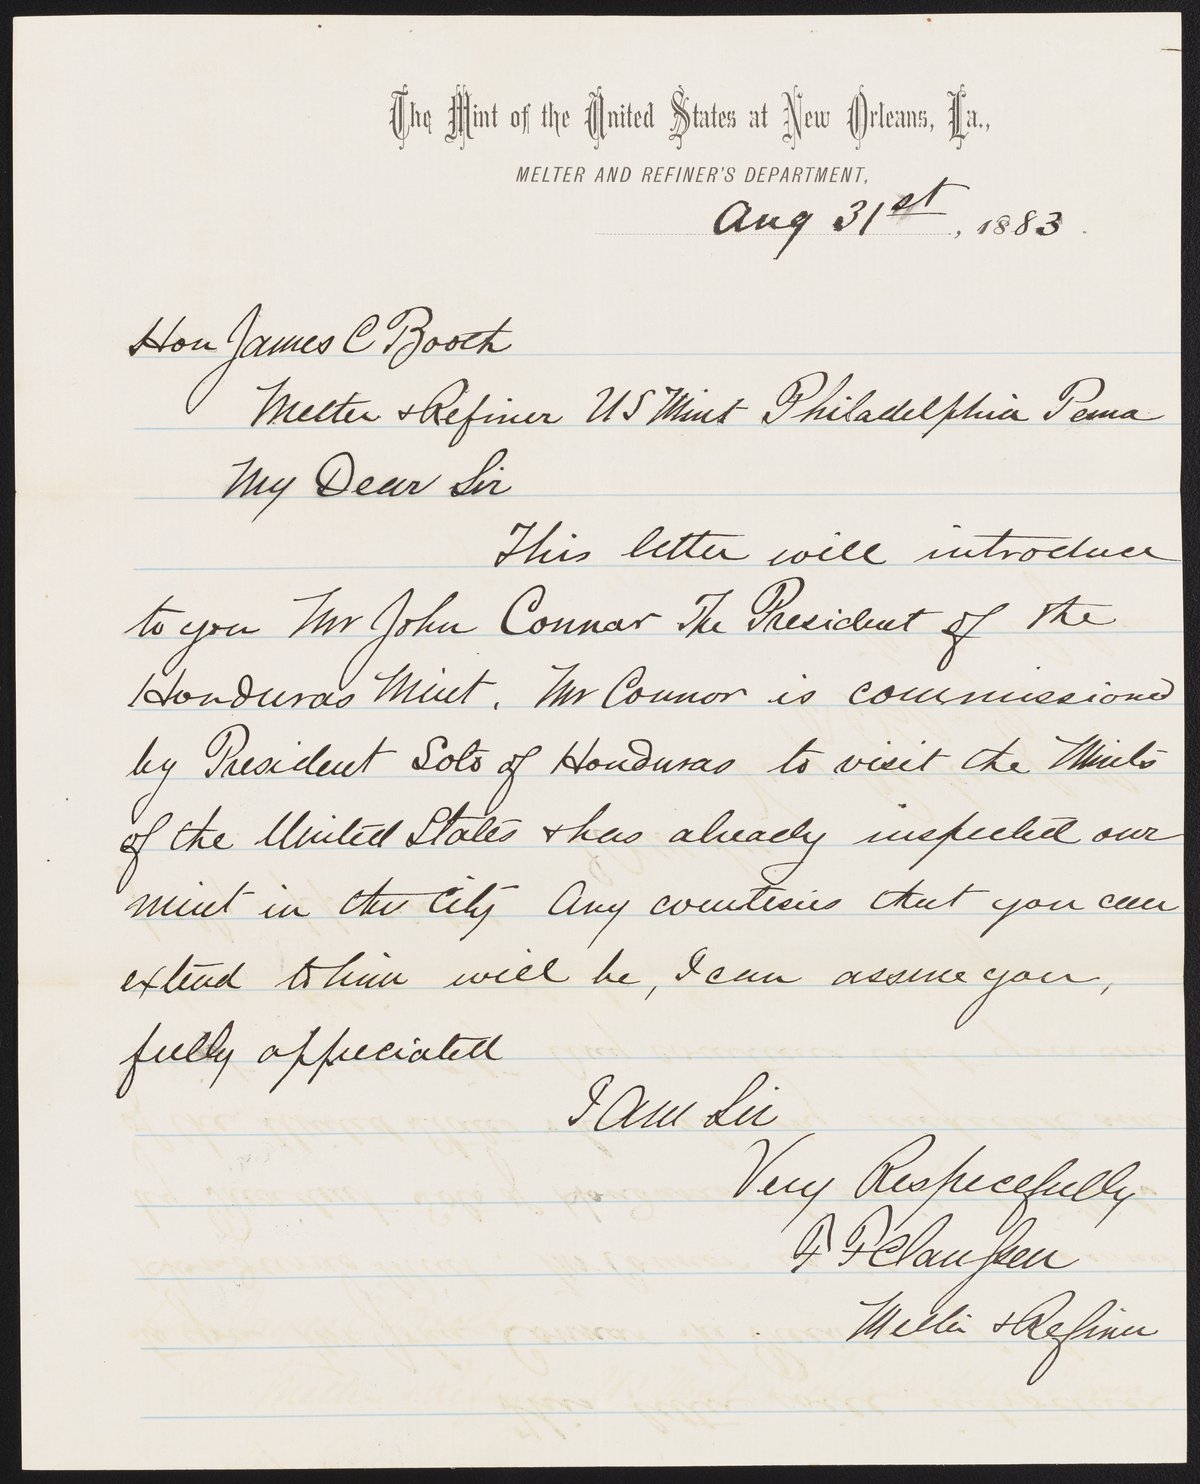 The Mint of the United States at New Orleans, La.,
MELTER AND REFINER'S DEPARTMENT,
Aug 31st, 1883.
Hon James C Booth
Melter & Refiner US Mint Philadelphia Penna
My Dear Sir
This letter will introduce
to you Mr John Connar The President of the
Honduras Mint. Mr Connor is commissioned
by President Soto of Honduras to visit the Mints
of the United States & has already inspected our
mint in the City Any courtesies that you can
extend to him will be, I can assure you,
fully appreciated
I am Sir
Very Respectfully
F F Claussen
Melter & Refiner